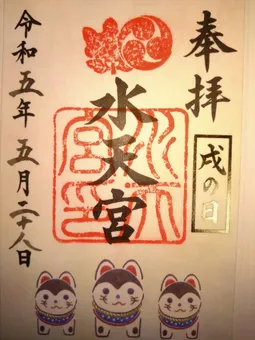 奉拝
戌の日
水天宮
水天宮印
令和五年五月二十八日